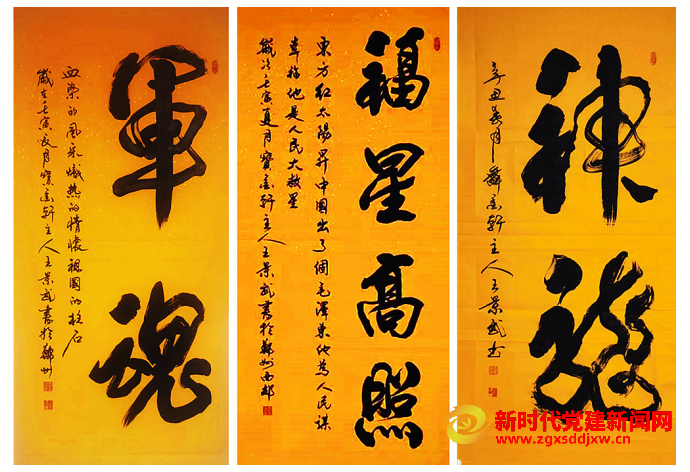 軍魂
血染的風采熾熱的情懷祖國的柱石
歲在壬寅夏月寶墨軒主人王景武書於鄭州
福星高照
東方红太陽昇中國出了個毛澤東他為人民謀
幸福他是人民大救星
歲次壬寅夏月寶墨軒主人王景武書於鄭州西郊
辛丑春月寶墨軒主人王景武書
新时代党建新闻网
www.zgxsddjxw.cn